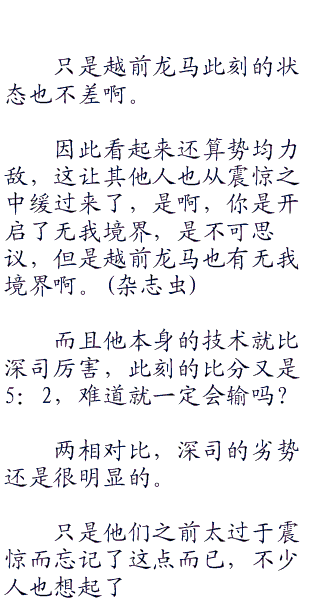 只是越前龙马此刻的状
态也不差啊。
因此看起来还算势均力
敌，这让其他人也从震惊之
中缓过来了，是啊，你是开
启了无我境界，是不可思
议，但是越前龙马也有无我
境界啊。(杂志虫)
而且他本身的技术就比
深司厉害，此刻的比分又是
5：2，难道就一定会输吗？
两相对比，深司的劣势
还是很明显的。
只是他们之前太过于震
惊而忘记了这点而已，不少
人也想起了